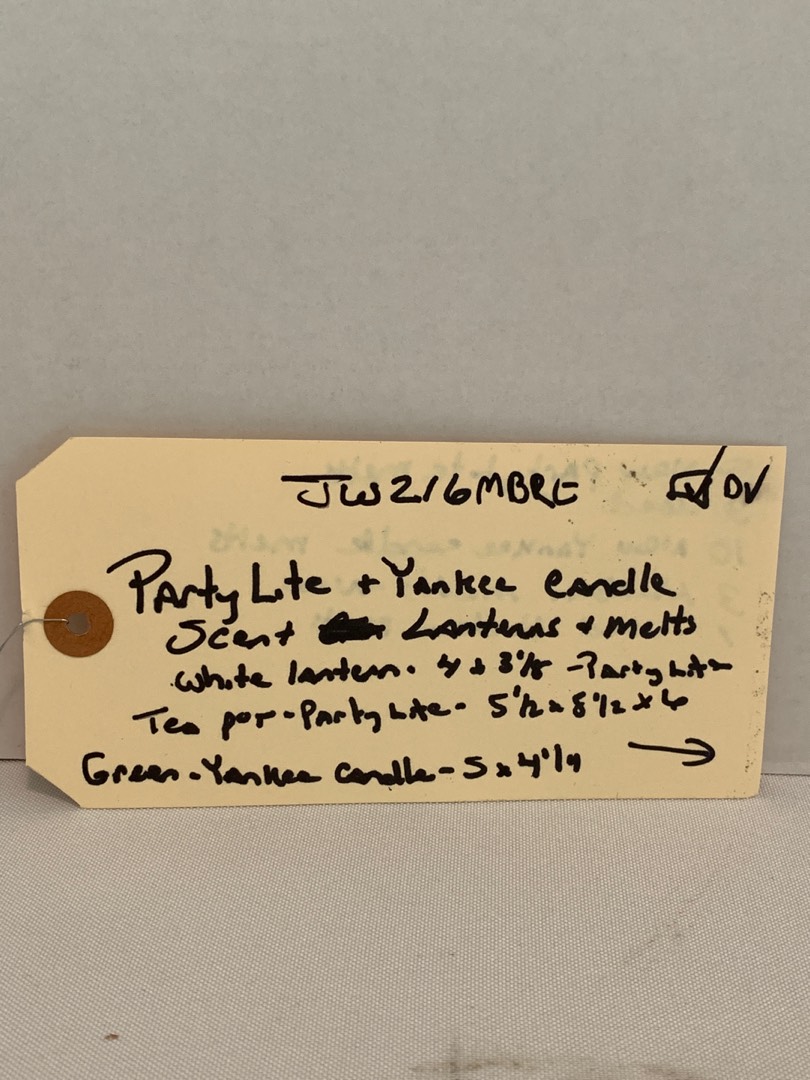 JW216MBRE DV
PartyLite + Yankee Candle
Scent Lanterns + Melts
White lantern. 4 x 3 1/8 - PartyLite
Tea pot - PartyLite - 5 1/2 x 8 1/2 x 6
Green - Yankee Candle - 5 x 4 1/4